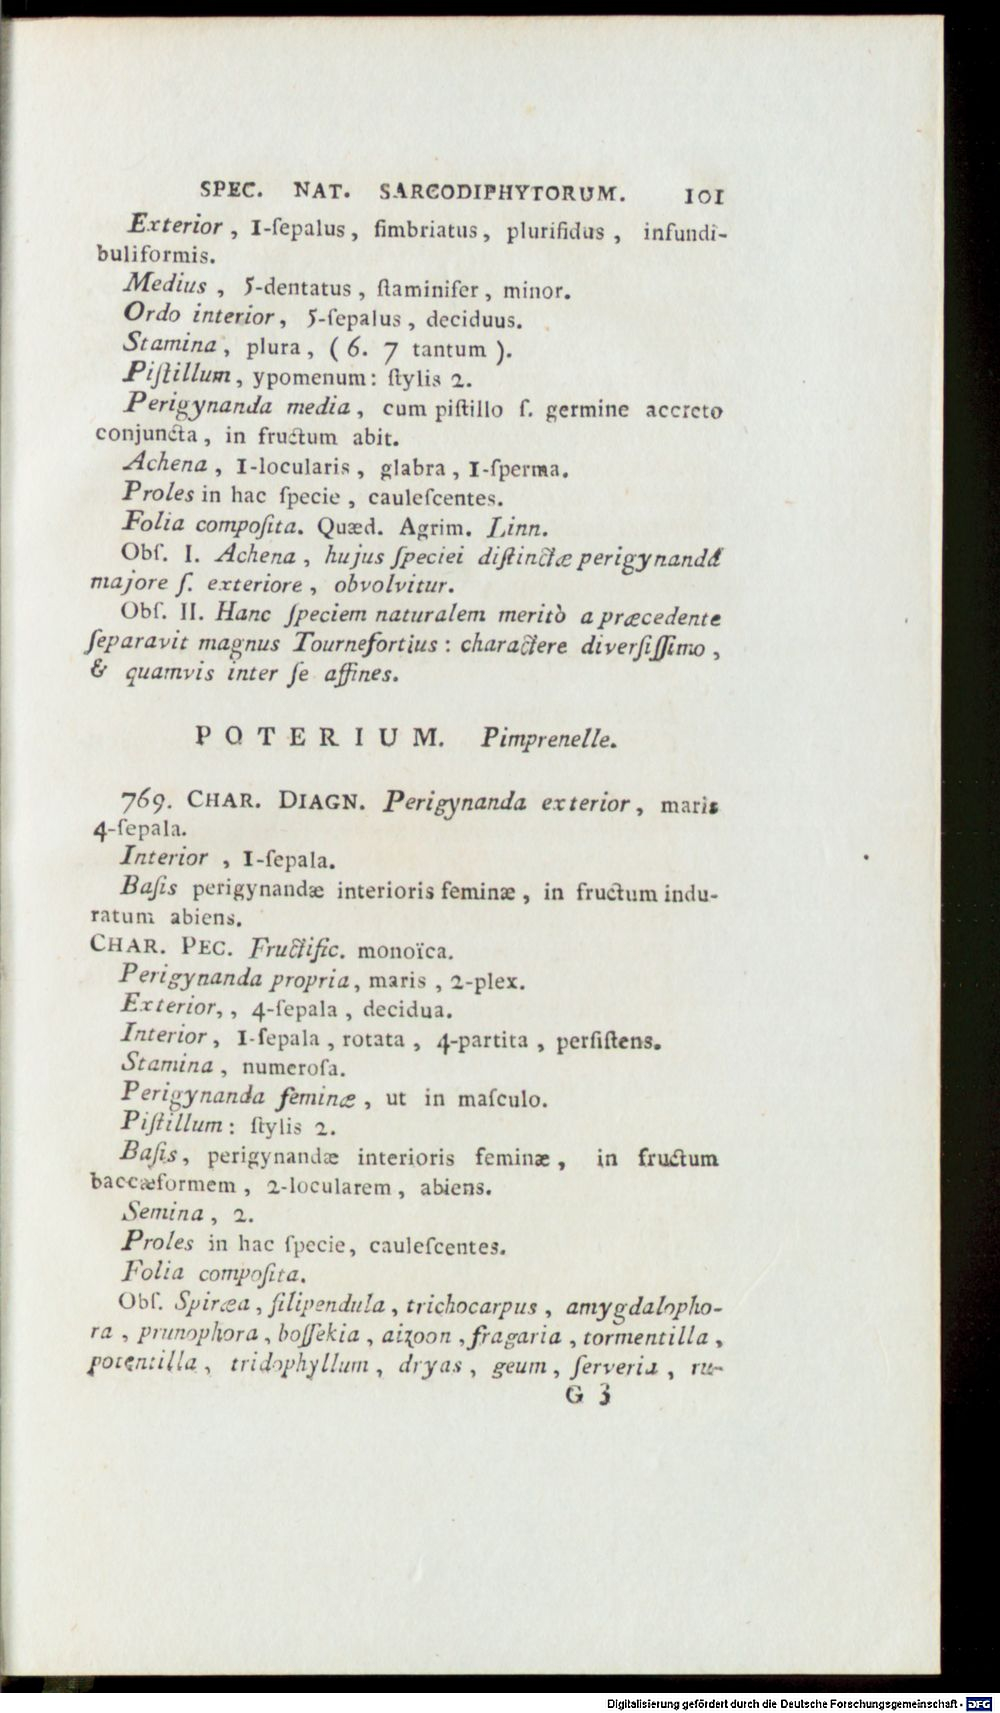 SPEC. NAT. SARCODIPHYTORUM. 101
Exterior, 1-ſepalus, fimbriatus, plurifidus, infundi-
buliformis.
Medius, 5-dentatus, ſtaminifer, minor.
Ordo interior, 5-ſepalus, deciduus.
Stamina, plura, (6. 7 tantum).
Piſtillum, ypomenum: ſtylis 2.
Perigynanda media, cum piſtillo ſ. germine accreto
conjuncta, in fructum abit.
Achena, 1-locularis, glabra, 1-ſperma.
Proles in hac ſpecie, cauleſcentes.
Folia compoſita. Quæd. Agrim. Linn.
Obſ. I. Achena, hujus ſpeciei diſtinctæ perigynandâ
majore ſ. exteriore, obvolvitur.
Obſ. II. Hanc ſpeciem naturalem meritò a præcedente
ſeparavit magnus Tournefortius: charactere diverſiſſimo,
& quamvis inter ſe affines.
POTERIUM. Pimprenelle.
769. CHAR. DIAGN. Perigynanda exterior, maris
4-ſepala.
Interior, 1-ſepala.
Baſis perigynandæ interioris feminæ, in fructum indu-
ratum abiens.
CHAR. PEC. Fructific. monoïca.
Perigynanda propria, maris, 2-plex.
Exterior,, 4-ſepala, decidua.
Interior, 1-ſepala, rotata, 4-partita, perſiſtens.
Stamina, numeroſa.
Perigynanda feminæ, ut in maſculo.
Piſtillum: ſtylis 2.
Baſis, perigynandæ interioris feminæ, in fructum
baccæformem, 2-locularem, abiens.
Semina, 2.
Proles in hac ſpecie, cauleſcentes.
Folia compoſita.
Obſ. Spiræa, filipendula, trichocarpus, amygdalopho-
ra, prunophora, boſſekia, aizoon, fragaria, tormentilla,
potentilla, tridophyllum, dryas, geum, ſerveria, ru-
G 3
Digitalisierung gefördert durch die Deutsche Forschungsgemeinschaft - DFG